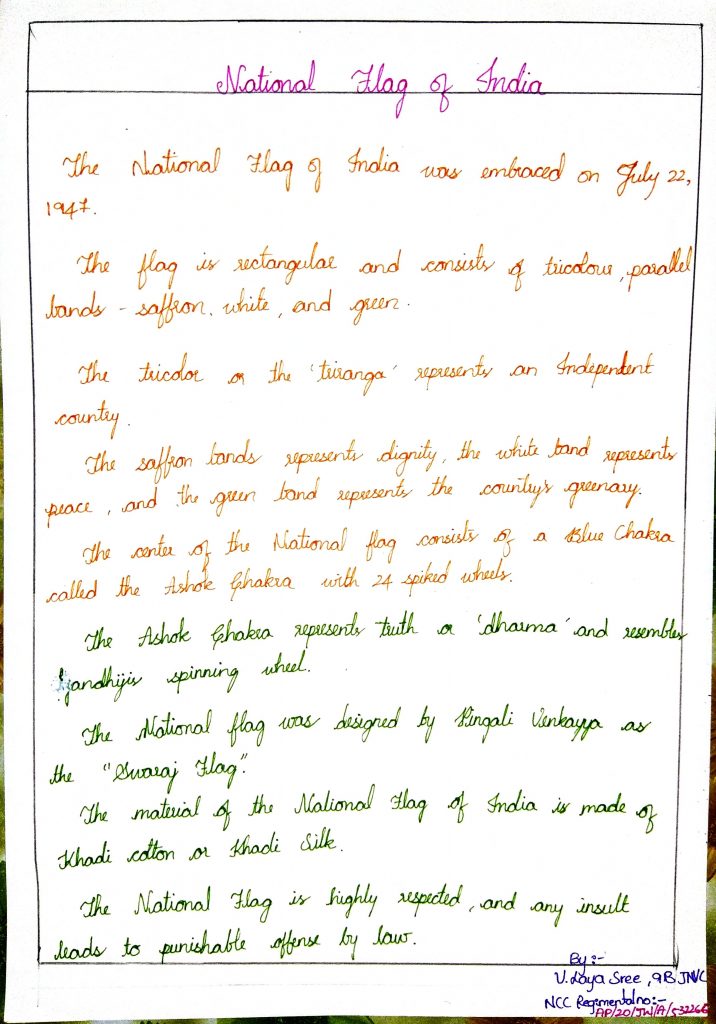 National Flag of India
The National Flag of India was embraced on July 22,
1947.
The flag is rectangular and consists of tricolour, parallel
bands - saffron, white, and green.
The tricolor or the 'tiranga' represents an Independent
country.
The saffron bands represents dignity, the white band represents
peace, and the green band represents the country's greenary.
The center of the National flag consists of a Blue Chakra
called the Ashok Chakra with 24 spiked wheels.
The Ashok Chakra represents truth or 'dharma' and resembles
Gandhijis spinning wheel.
The National flag was designed by Pingali Venkayya as
the "Swaraj Flag".
The material of the National Flag of India is made of
Khadi cotton or Khadi Silk.
The National Flag is highly respected, and any insult
leads to punishable offense by law.
By :-
V. Laya Sree, 9B JNVC
NCC Regimental no:-